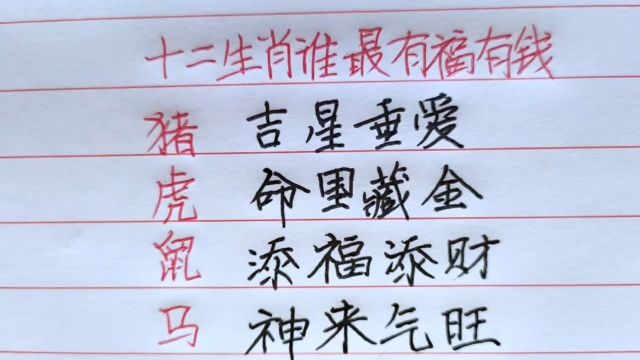 十二生肖谁最有福有钱
猪 吉星垂爱
虎 命里藏金
鼠 添福添财
马 神来气旺